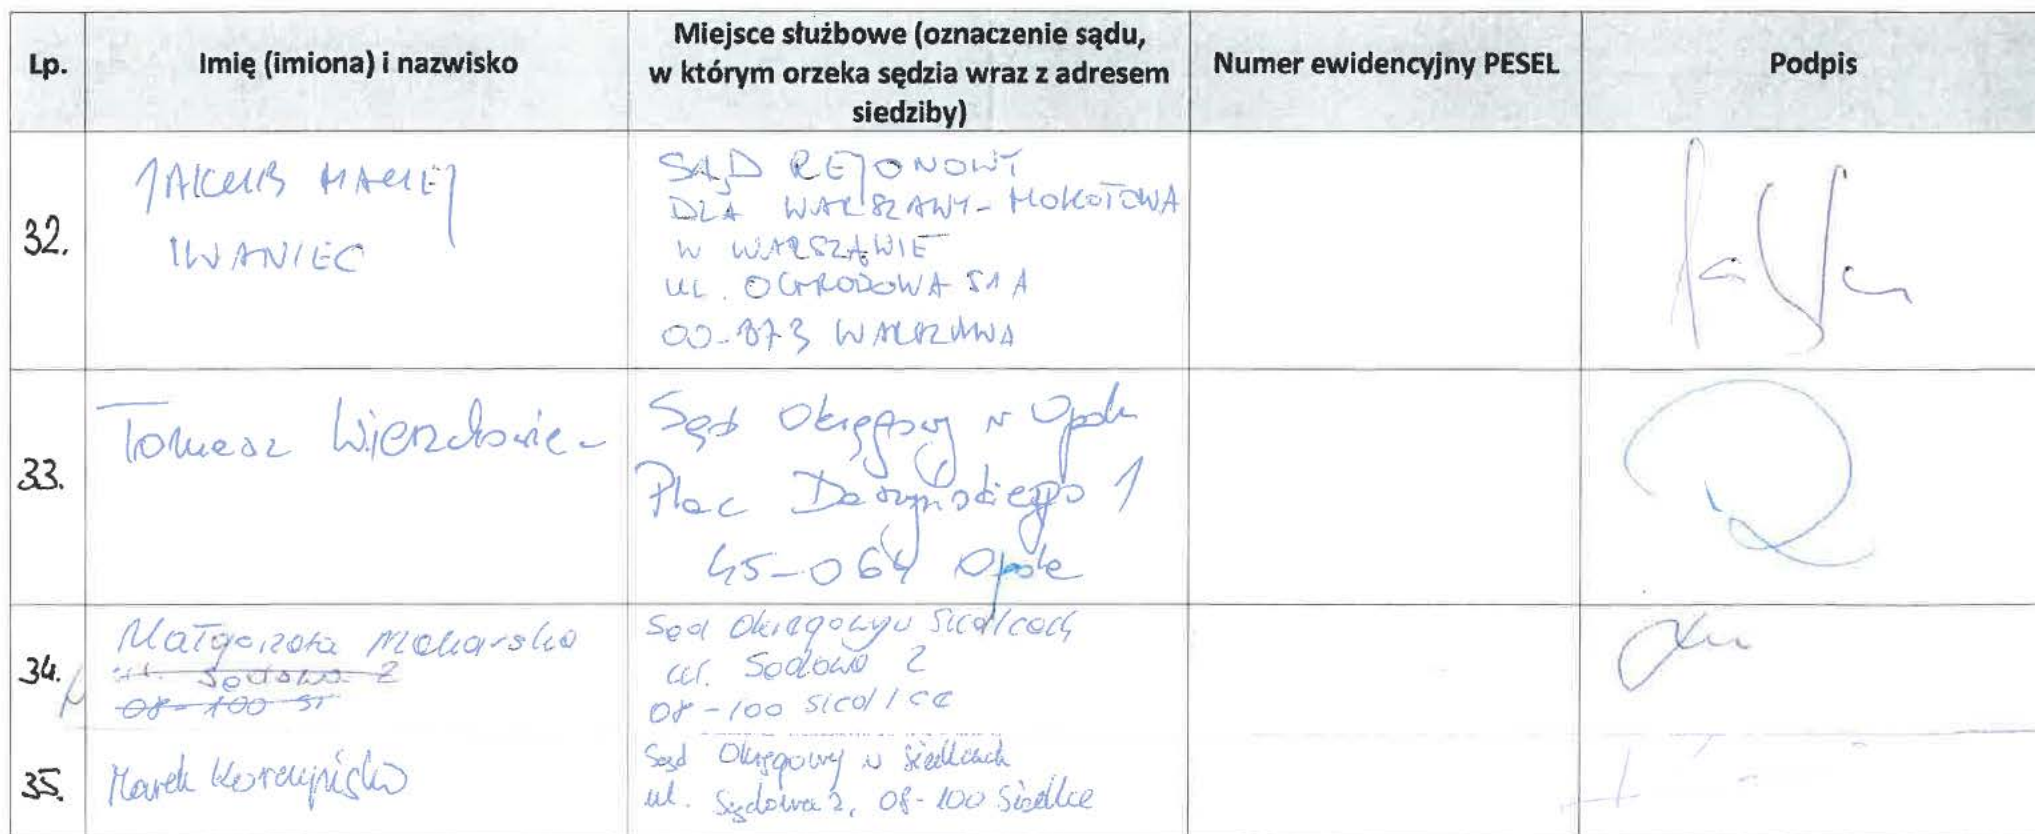 Lp.
Imię (imiona) i nazwisko
Miejsce służbowe (oznaczenie sądu,
w którym orzeka sędzia wraz z adresem
siedziby)
Numer ewidencyjny PESEL
Podpis
32.
JAKUB MACIEJ
IWANIEC
SĄD REJONOWY
DLA WARSZAWY-MOKOTOWA
W WARSZAWIE
UL. OGRODOWA 51A
00-873 WARSZAWA
33.
Tomasz
Sąd Okręgowy w Opolu
Plac Daszyńskiego 1
45-064 Opole
34.
Małgorzata Makarska
ul. Sądowa 2
08-100 Si
Sąd Okręgowy w Siedlcach
ul. Sądowa 2
08-100 Siedlce
35.
Marek
Sąd Okręgowy w Siedlcach
ul. Sądowa 2, 08-100 Siedlce